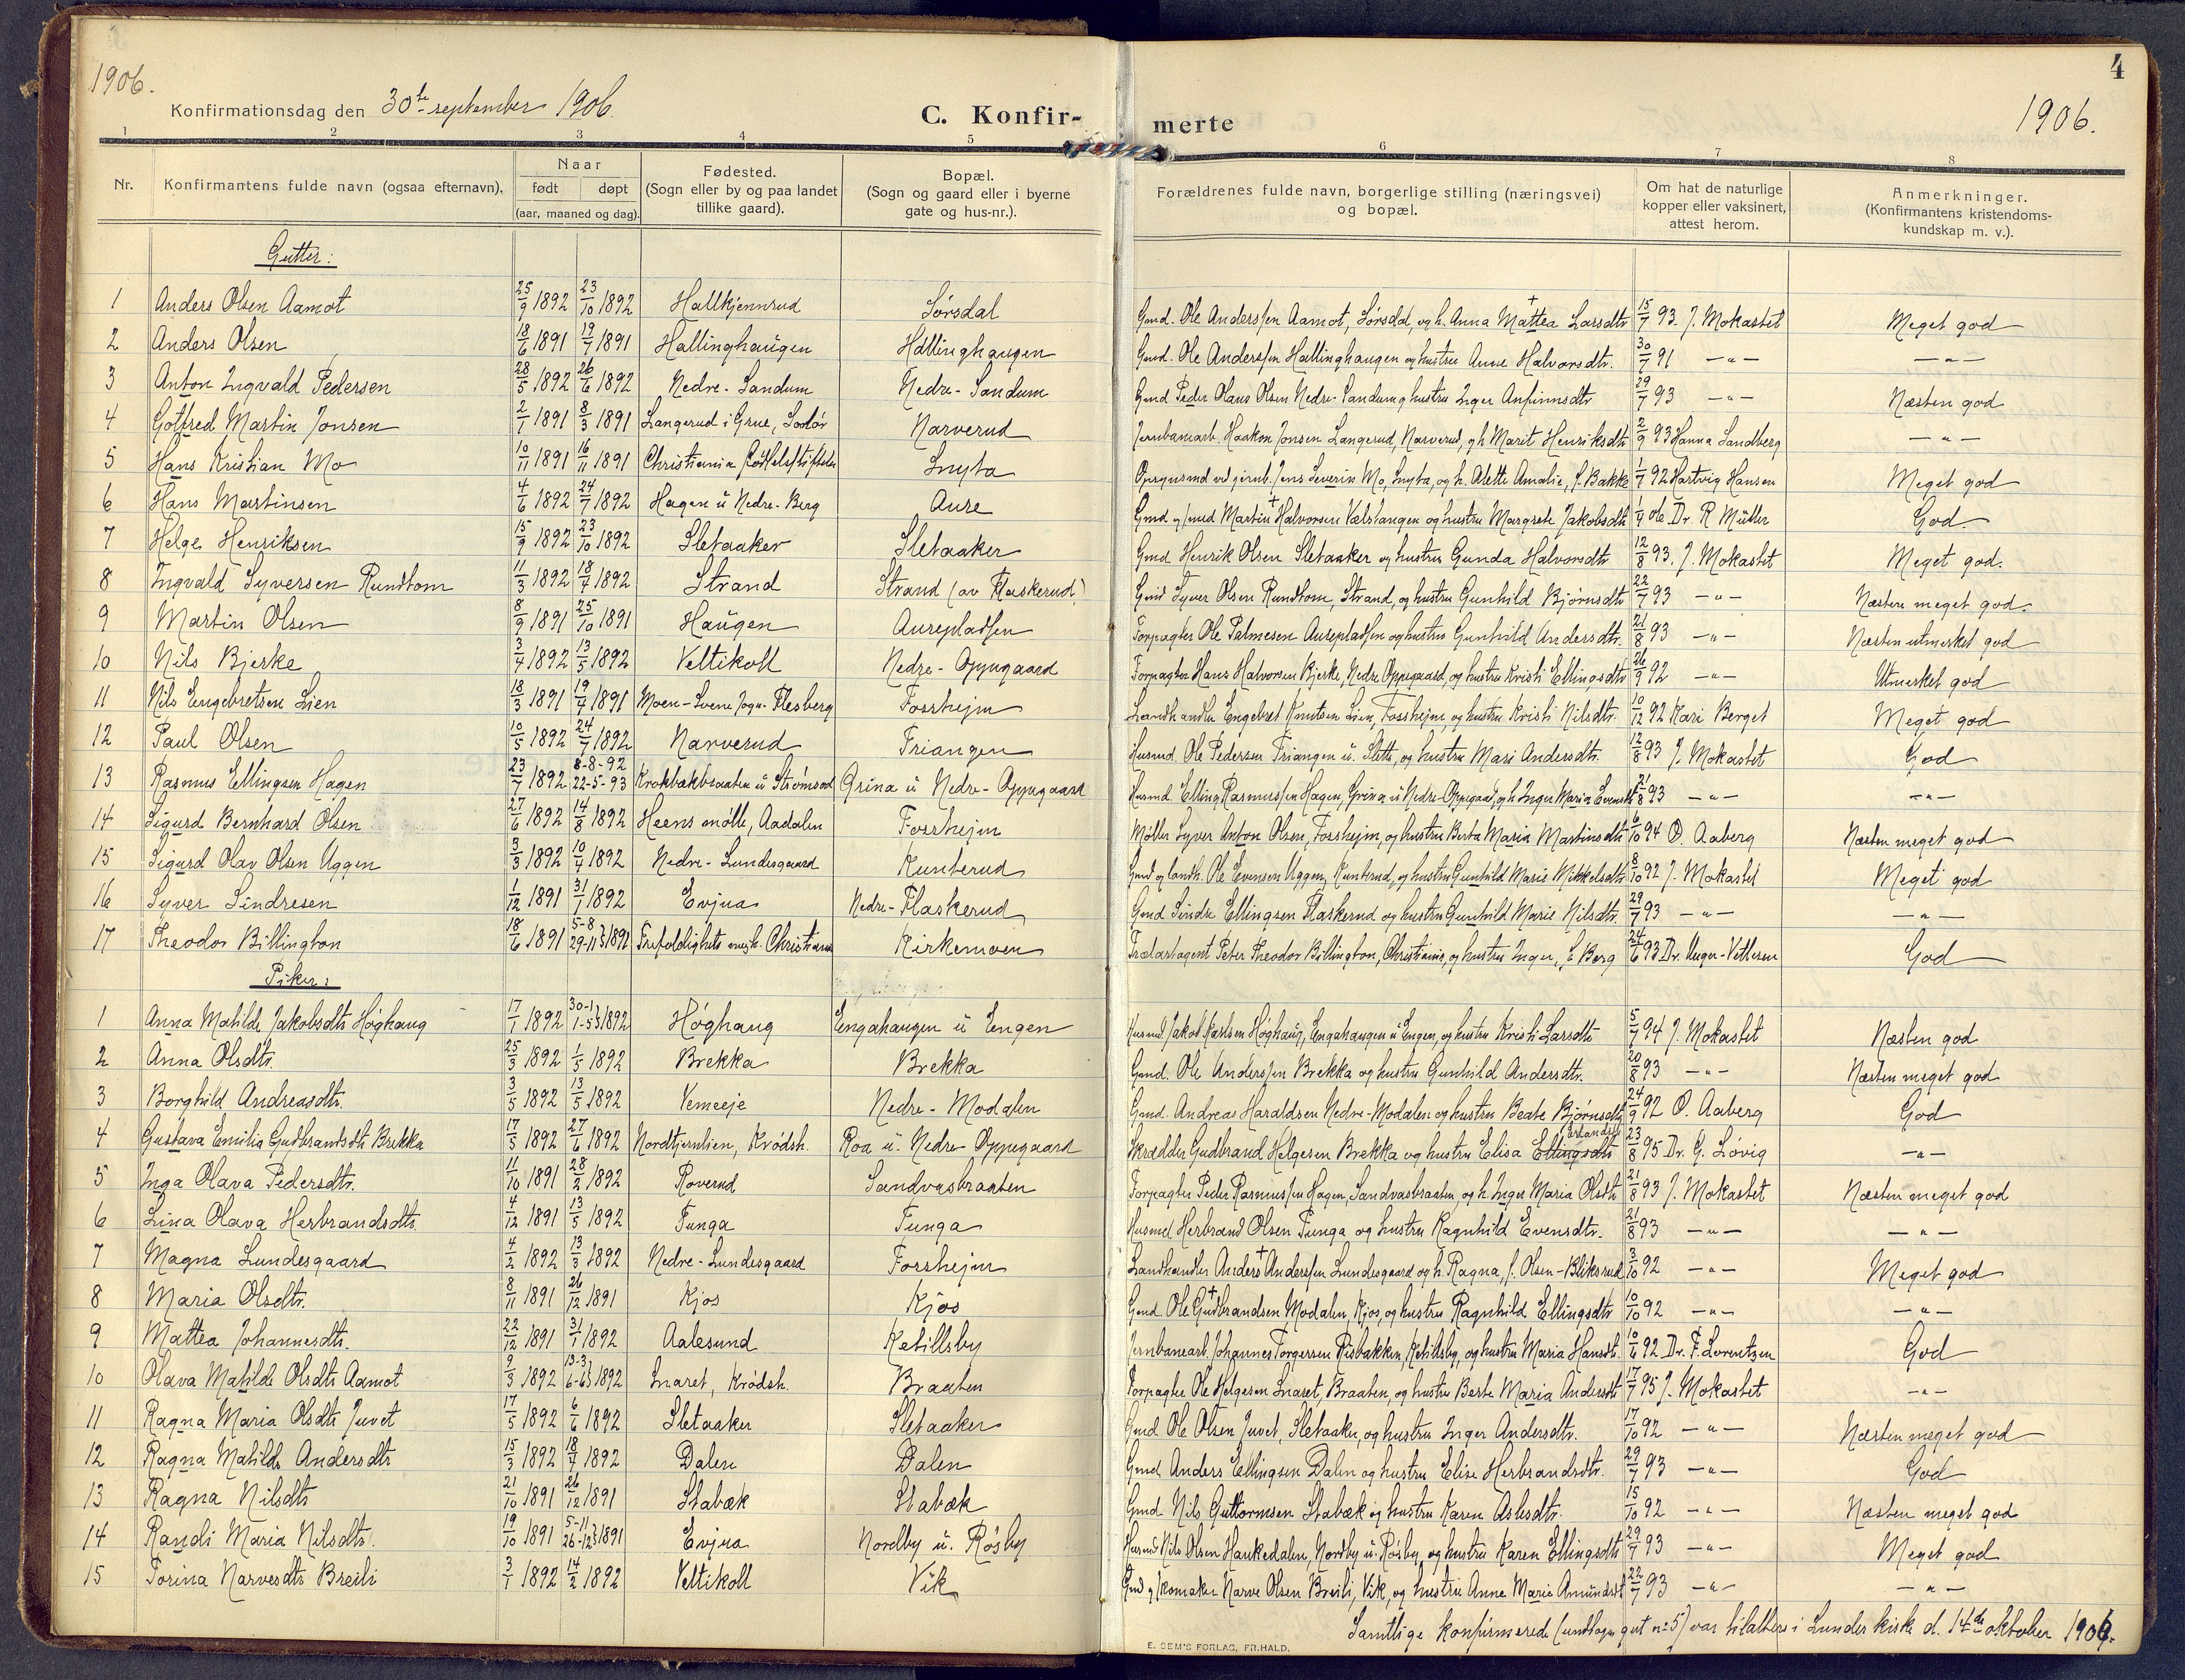 4
1906.
Konfirmationsdag den 30te september 1906.
C. Konfir-
merte
1906.
1 2 3 4 5 6 7 8
Nr.
Konfirmantens fulde navn (ogsaa efternavn).
Naar
født døpt
(aar, maaned og dag).
Fødested.
(Sogn eller by og paa landet
tillike gaard).
Bopæl.
(Sogn og gaard eller i byerne
gate og hus-nr.).
Forældrenes fulde navn, borgerlige stilling (næringsvei)
og bopæl.
Om hat de naturlige
kopper eller vaksinert,
attest herom.
Anmerkninger.
(Konfirmantens kristendoms-
kundskap m. v.).
Gutter:
1 Anders Olsen Aamot 25/9 1892 23/10 1892 Hallkjennrud Sørsdal Gmd. Ole Anderssen Aamot, Sørsdal, og h. Anna Mattea Larsdtr 15/7 93. J. Mokastet Meget god
2 Anders Olsen 18/6 1891 19/7 1891 Hallinghaugen Hallinghaugen Gmd. Ole Anderssen Hallinghaugen og hustru Anne Halvorsdtr. 30/7 91 -"- -"-
3 Anton Ingvald Pedersen 28/5 1892 26/6 1892 Nedre-Sandum Nedre-Sandum Gmd Peder Olaus Olsen Nedre-Sandum og hustru Inger Anfinnsdtr 29/7 93 -"- Næsten god
4 Gotfred Martin Jonsen 2/1 1891 8/3 1891 Langerud i Grue, Solør Narverud Jernbanearb. Haakon Jonsen Langerud, Narverud, og h. Marit Henriksdtr 2/9 93 Hanna Sandberg -"-
5 Hans Kristian Mo 10/11 1891 16/11 1891 Christiania Snyta Opsynsmd ved jernb. Jens Severin Mo, Snyta, og h. Alette Amalie, f. Bakke 1/7 92 Hartvig Hansen Meget god
6 Hans Martinsen 4/6 1892 24/7 1892 Hagen u Nedre-Berg Aure Gmd og smed Martin Halvorsen Vælstangen og hustru Margrete Jakobsdtr 1/4 06 Dr. R Müller God
7 Helge Henriksen 15/9 1892 23/10 1892 Sletaaker Sletaaker Gmd Henrik Olsen Sletaaker og hustru Gunda Halvorsdtr 12/8 93. J. Mokastet Meget god.
8 Ingvald Syversen Rundtom 11/3 1892 18/4 1892 Strand Strand (av Flaskerud) Gmd Syver Olsen Rundtom, Strand, og hustru Gunhild Bjørnsdtr 22/7 93 -"- Næsten meget god.
9 Martin Olsen 8/9 1891 25/10 1891 Haugen Aurepladsen Forpagter Ole Palmesen Aurepladsen og hustru Gunhild Andersdtr. 21/8 93 -"- Næsten utmerket god
10 Nils Bjerke 3/4 1892 13/5 1892 Veltikoll Nedre-Oppegaard Forpagter Hans Halvorsen Bjerke, Nedre Oppegaard, og hustru Kristi Ellingsdtr 26/9 92 -"- Utmerket god
11 Nils Engebretsen Lien 18/3 1891 19/4 1891 Moen-Svene sogn. Flesberg Fossheim Landhandler Engebret Knutsen Lien, Fossheim, og hustru Kristi Nilsdtr. 10/12 92 Kari Berget Meget god
12 Paul Olsen 10/5 1892 24/7 1892 Narverud Friangen Husmd. Ole Pedersen Friangen u. Slette, og hustru Mari Andersdtr. 12/8 93 J. Mokastet God
13 Rasmus Ellingsen Hagen 23/7 1892 8-8-92 22-5-93 Krokbækbraaten u Strømsod Grina u Nedre-Oppegaard Husmd. Elling Rasmussen Hagen, Grina u Nedre-Oppegaard, og h. Inger Maria Evensdtr 21/8 93 -"- -"-
14 Sigurd Bernhard Olsen 27/6 1892 14/8 1892 Heens mølle, Aadalen Fossheim Møller Syver Anton Olsen, Fossheim, og hustru Berta Maria Martinsdtr 6/10 94 O. Aaberg Næsten meget god
15 Sigurd Olav Olsen Uggen 3/3 1892 10/4 1892 Nedre-Lundesgaard Kunterud Gmd og landh. Ole Evensen Uggen, Kunterud, og hustru Gunhild Marie Mikkelsdtr 8/10 92 J. Mokastet Meget god
16 Syver Sindresen 1/12 1891 31/1 1892 Evjua Nedre-Flaskerud Gmd Sindre Ellingsen Flaskerud og hustru Gunhild Marie Nilsdtr. 29/7 93 -"- -"-
17 Theodor Billington 18/6 1891 5-8 29-11 1891 Trefoldighets Christiania Kirkemoen Trælastagent Peter Theodor Billington, Christiania, og hustru Inger, f. Berg 24/6 93 Dr. Unger-Vetlesen God
Piker:
1 Anna Matilde Jakobsdtr Høghaug 17/1 1892 30-1 1-5 1892 Høghaug Engahaugen u Engen Husmd Jakob Karlsen Høghaug, Engahaugen u Engen, og hustru Kristi Larsdtr 5/7 94 J. Mokastet Næsten god
2 Anna Olsdtr. 25/3 1892 1/5 1892 Brekka Brekka Gmd. Ole Anderssen Brekka og hustru Gunhild Andersdtr. 20/8 93 -"- Næsten meget god
3 Borghild Andreasdtr. 3/5 1892 13/5 1892 Vemeeje Nedre-Modalen Gmd. Andreas Haraldsen Nedre-Modalen og hustru Beate Bjørnsdtr 24/9 92 O. Aaberg God
4 Gustava Emilia Gudbrandsdtr Brekka 17/5 1892 27/6 1892 Nordtjernlien, Krødsh. Roa u. Nedre Oppegaard Skrædder Gudbrand Helgesen Brekka og hustru Elisa Ellingsdtr Erlandsd 23/8 95 Dr. G. Løvig -"-
5 Inga Olava Pedersdtr. 11/10 1891 28/2 1892 Roverud Sandvasbraaten Forpagter Peder Rasmussen Hagen, Sandvasbraaten, og h. Inger Maria Olsdtr 21/8 93 J. Mokastet Næsten meget god
6 Lina Olava Herbrandsdtr. 4/12 1891 13/5 1892 Tunga Tunga Husmd Herbrand Olsen Tunga og hustru Ragnhild Evensdtr. 21/8 93 -"- -"-
7 Magna Lundesgaard 4/2 1892 13/3 1892 Nedre-Lundesgaard Fossheim Landhandler Anders Anderssen Lundesgaard og h. Ragna, f. Olsen-Bliksrud 3/10 92 -"- Meget god
8 Maria Olsdtr. 8/11 1891 26/12 1891 Kjos Kjos Gmd. Ole Gudbrandsen Modalen, Kjos, og hustru Ragnhild Ellingsdtr 10/10 92 -"- -"-
9 Mattea Johannesdtr. 22/12 1891 31/1 1892 Aalesund Ketillsby Jernbanearb. Johannes Torgersen Risbakken, Ketillsby, og hustru Maria Hansdt. 10/6 92 Dr. F. Lorentzen God
10 Olava Matilde Olsdtr Aamot 9/3 1892 13-3 6-6 1892 Snaret, Krødsh. Braaten Forpagter Ole Helgesen Snaret, Braaten, og hustru Berte Maria Andersdtr 17/7 95 J. Mokastet -"-
11 Ragna Maria Olsdtr Juvet 17/5 1892 6/6 1892 Sletaaker Sletaaker Gmd Ole Olsen Juvet, Sletaaker, og hustru Inger Andersdtr. 17/10 92 -"- Næsten meget god
12 Ragna Matilde Andersdtr 15/3 1892 18/4 1892 Dalen Dalen Gmd. Anders Ellingsen Dalen og hustru Elise Herbrandsdtr. 29/7 93 -"- God
13 Ragna Nilsdtr 21/10 1891 26/12 1891 Stabæk Stabæk Gmd. Nils Guttormsen Stabæk og hustru Karen Aslesdtr. 15/10 92 -"- Næsten meget god
14 Randi Maria Nilsdtr. 19/10 1891 5-11 26-12 1891 Evjua Nordby u. Røsby Husmd Nils Olsen Haukedalen, Nordby u. Røsby, og hustru Karen Ellingsdtr 29/7 93 -"- Meget god
15 Torina Narvesdtr Breili 3/1 1892 14/2 1892 Veltikoll Vik Gmd og skomaker Narve Olsen Breili, Vik, og hustru Anne Marie Amundsdt 22/7 93 -"- -"-
Samtlige konfirmerede (undtagen gut no 5) var tilalters i Lunder kirke d. 14de oktober 1906.
E. SEM'S FORLAG, FR.HALD.